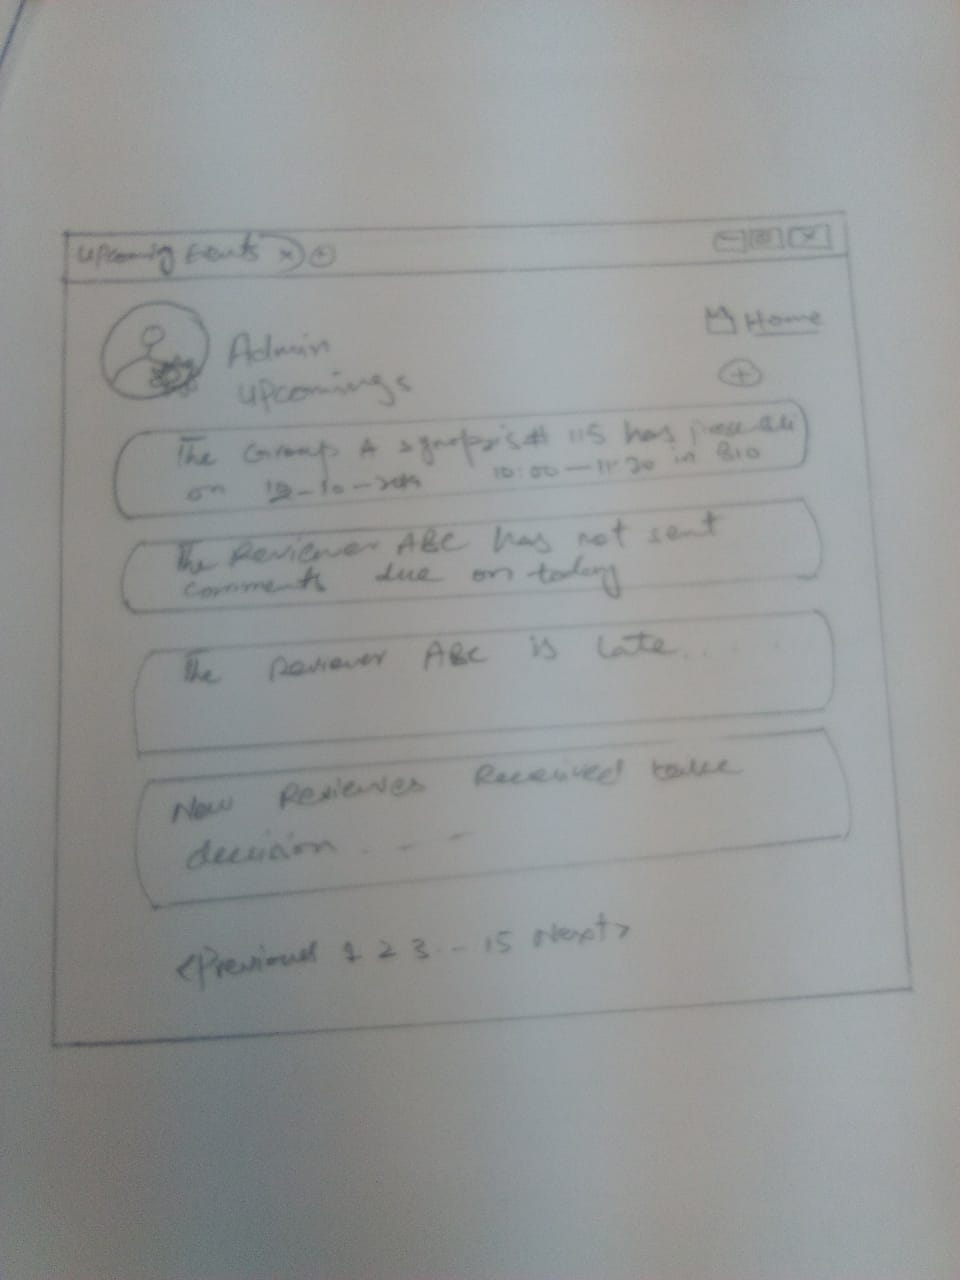 Upcoming Events x +
Home
Admin
Upcomings
The Group A synopsis # 115 has
on 10:00 - 11:20 in B10
The Reviewer ABC has not sent
comments due on today
The Reviewer ABC is Late....
New Reviewes Received take
decision . - -
<Previous 1 2 3 .. - 15 Next>